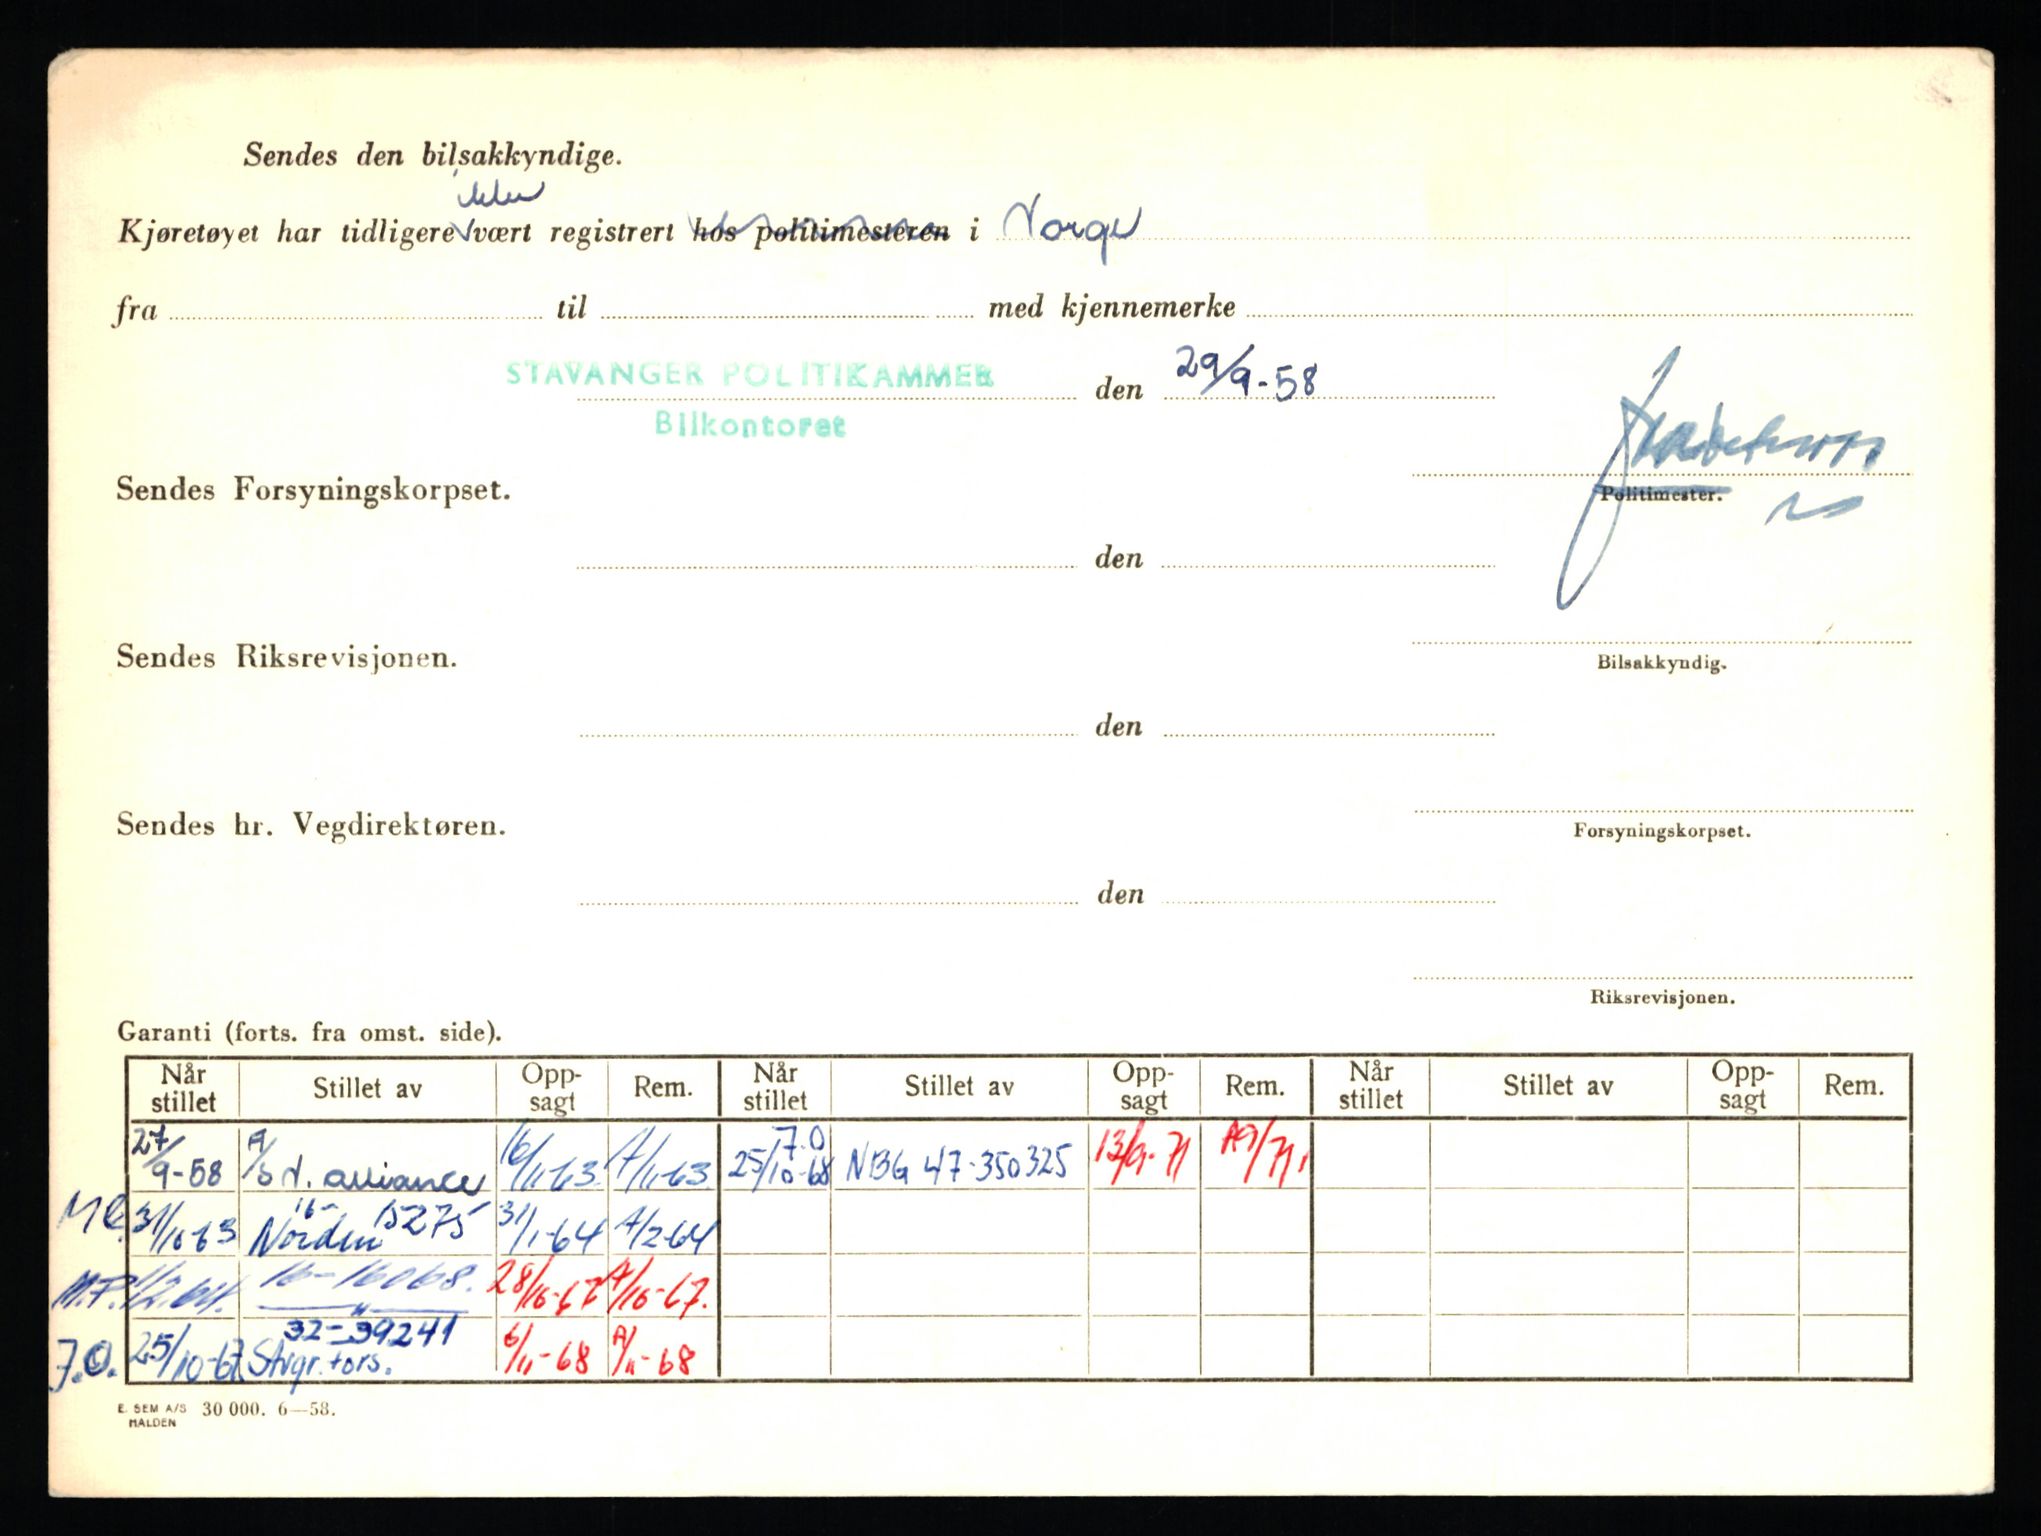 Sendes den bilsakkyndige.
ikke
Kjøretøyet har tidligere vært registrert hos politimesteren i Norge
fra til med kjennemerke
STAVANGER POLITIKAMMER den 29/9-58
Bilkontoret
Sendes Forsyningskorpset.
Politimester.
den
Sendes Riksrevisjonen.
Bilsakkyndig.
den
Sendes hr. Vegdirektøren.
Forsyningskorpset.
den
Riksrevisjonen.
Garanti (forts. fra omst. side).
Når stillet Stillet av Opp-sagt Rem. Når stillet Stillet av Opp-sagt Rem. Når stillet Stillet av Opp-sagt Rem.
27/9-58 A/S N. alliance 16/11-63 A/11-63 J.O 25/10-68 NBG 47-350325 13/9-71 A9/71.
31/10-63 Norden 16-15275 31/1-64 A/2-64
M.P. 1/2.64. 16-16068. " 28/10-67 A/10-67.
J.O. 25/10-67 32-39241 Stvgr. fors. 6/11-68 A/11-68
E. SEM A/S HALDEN 30 000. 6—58.